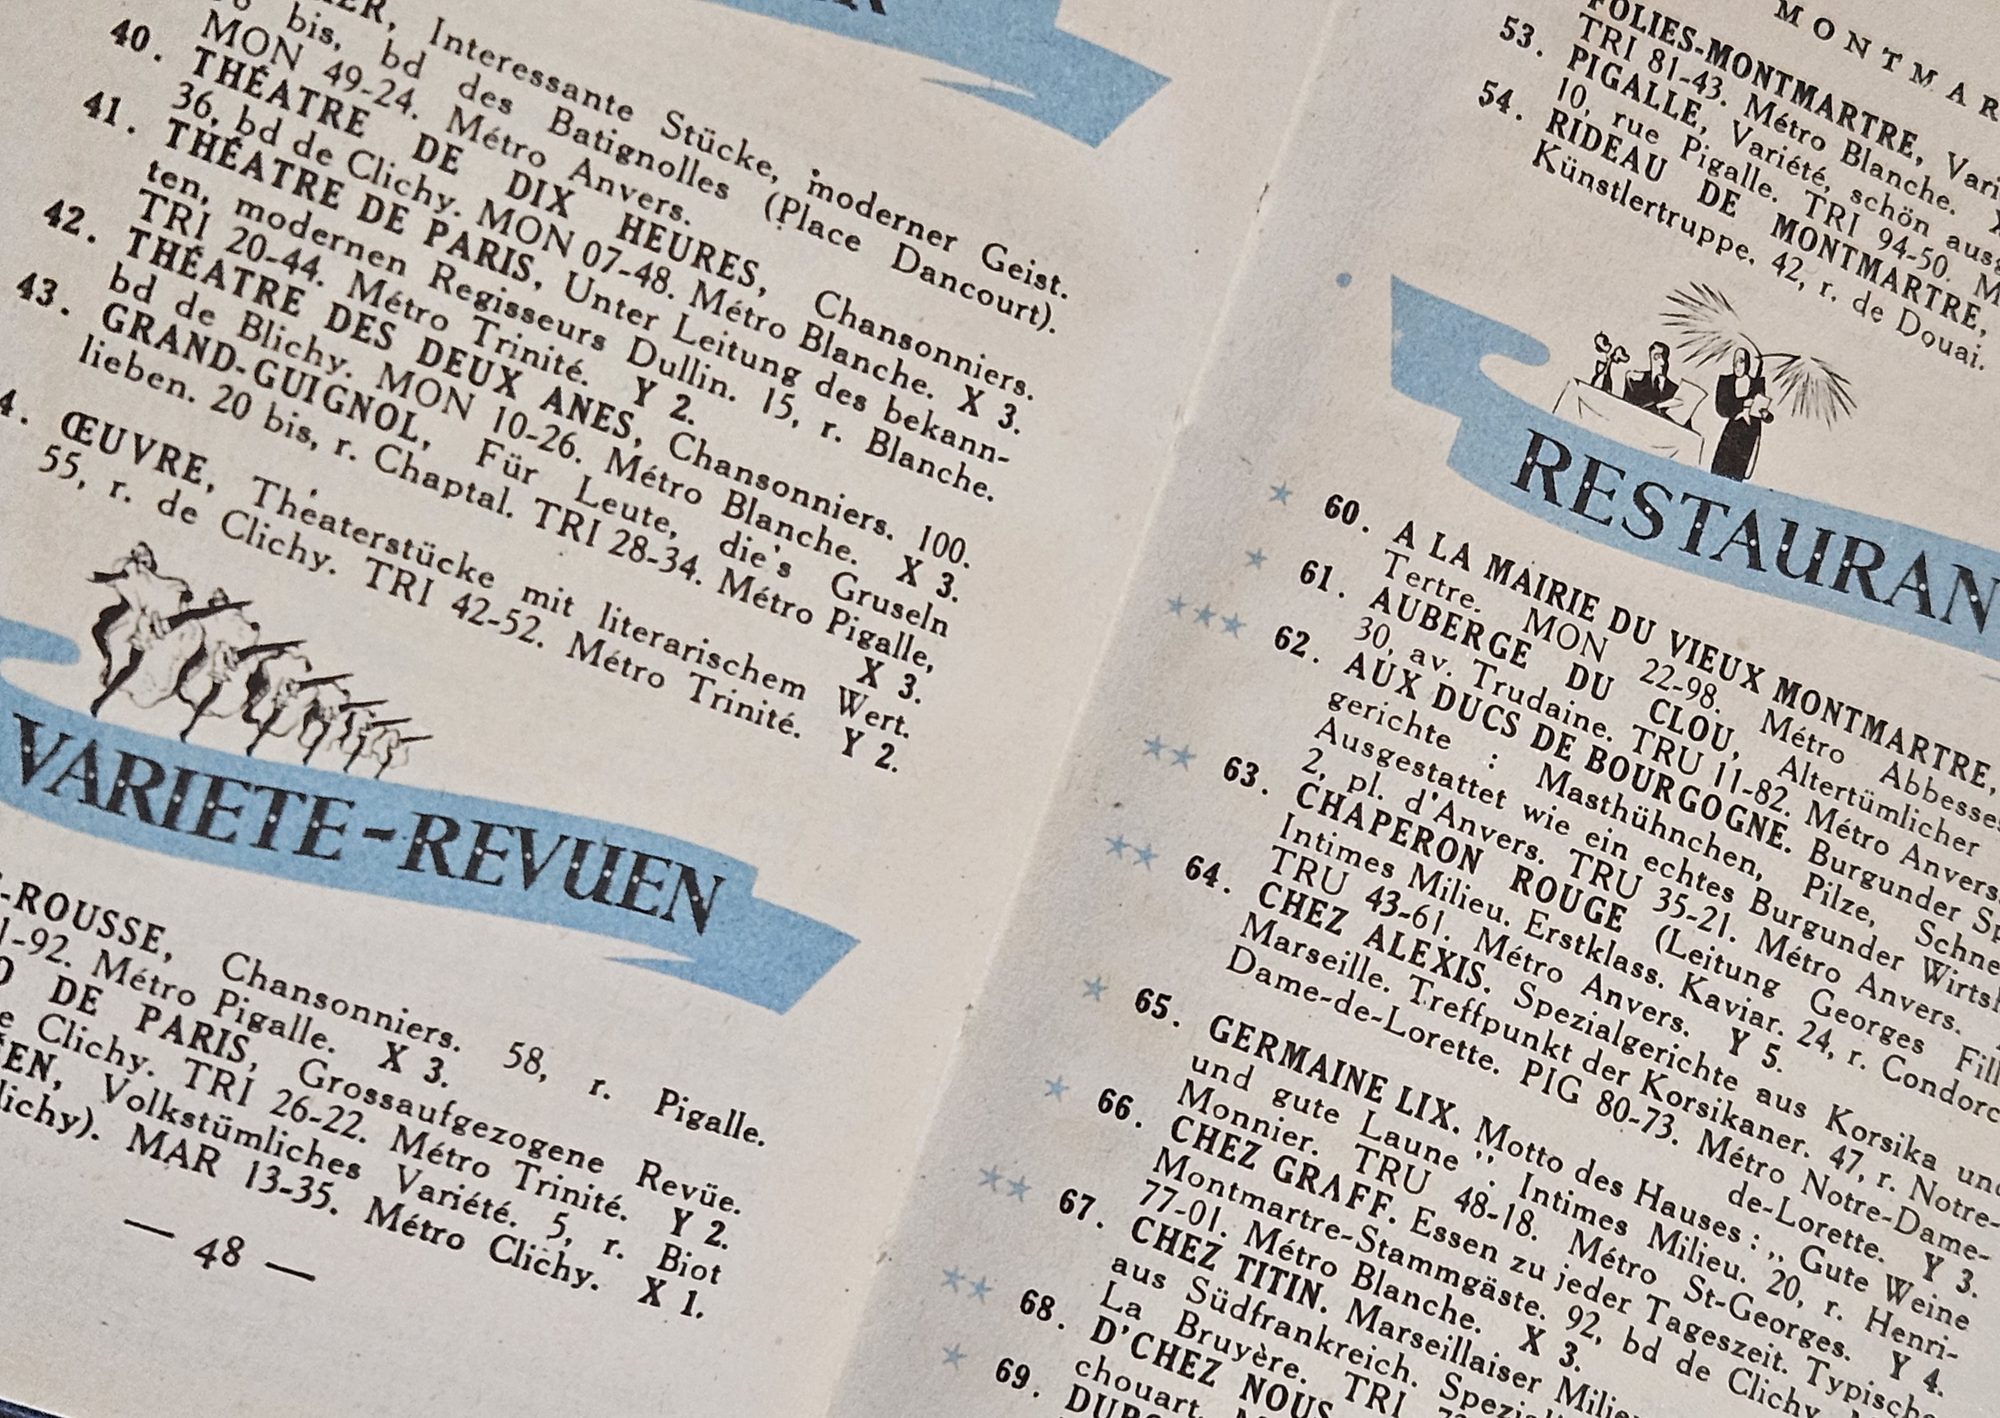 Interessante Stücke, moderner Geist.
bis, bd des Batignolles (Place Dancourt).
MON 49-24. Métro Anvers.
40. THÉATRE DE DIX HEURES, Chansonniers.
36, bd de Clichy. MON 07-48. Métro Blanche. X 3.
41. THÉATRE DE PARIS, Unter Leitung des bekann-
ten, modernen Regisseurs Dullin. 15, r. Blanche.
TRI 20-44. Métro Trinité. Y 2.
42. THÉATRE DES DEUX ANES, Chansonniers. 100.
bd de Blichy. MON 10-26. Métro Blanche. X 3.
43. GRAND-GUIGNOL, Für Leute, die's Gruseln
lieben. 20 bis, r. Chaptal. TRI 28-34. Métro Pigalle,
X 3.
4. ŒUVRE, Theaterstücke mit literarischem Wert.
55, r. de Clichy. TRI 42-52. Métro Trinité. Y 2.
VARIETE-REVUEN
-ROUSSE, Chansonniers. 58, r. Pigalle.
1-92. Métro Pigalle. X 3.
DE PARIS, Grossaufgezogene Revüe.
Clichy. TRI 26-22. Métro Trinité. Y 2.
Volkstümliches Variété. 5, r. Biot
MAR 13-35. Métro Clichy. X 1.
— 48 —
MONTMAR
FOLIES-MONTMARTRE, Vari
TRI 81-43. Métro Blanche. X
53. PIGALLE, Variété, schön ausg
10, rue Pigalle. TRI 94-50. M
54. RIDEAU DE MONTMARTRE,
Künstlertruppe. 42, r. de Douai.
RESTAURAN
* 60. A LA MAIRIE DU VIEUX MONTMARTRE,
Tertre. MON 22-98. Métro Abbesses
* 61. AUBERGE DU CLOU, Altertümlicher
30, av. Trudaine. TRU 11-82. Métro Anvers
*** 62. AUX DUCS DE BOURGOGNE. Burgunder Sp
gerichte : Masthühnchen, Pilze, Schne
Ausgestattet wie ein echtes Burgunder Wirtsh
2, pl. d'Anvers. TRU 35-21. Métro Anvers.
** 63. CHAPERON ROUGE (Leitung Georges Fill
Intimes Milieu. Erstklass. Kaviar. 24, r. Condorc
TRU 43-61. Métro Anvers. Y 5.
** 64. CHEZ ALEXIS. Spezialgerichte aus Korsika und
Marseille. Treffpunkt der Korsikaner. 47, r. Notre-
Dame-de-Lorette. PIG 80-73. Métro Notre-Dame-
de-Lorette. Y 3.
* 65. GERMAINE LIX. Motto des Hauses : „ Gute Weine
und gute Laune ". Intimes Milieu. 20, r. Henri-
Monnier. TRU 48-18. Métro St-Georges. Y 4.
* 66. CHEZ GRAFF. Essen zu jeder Tageszeit. Typische
Montmartre-Stammgäste. 92, bd de Clichy.
77-01. Métro Blanche. X 3.
** 67. CHEZ TITIN. Marseillaiser Milieu
aus Südfrankreich. Spezial
La Bruyère. TRI
** 68. D'CHEZ NOUS
chouart.
* 69.